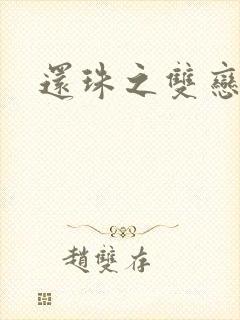 還珠之雙戀
趙雙存